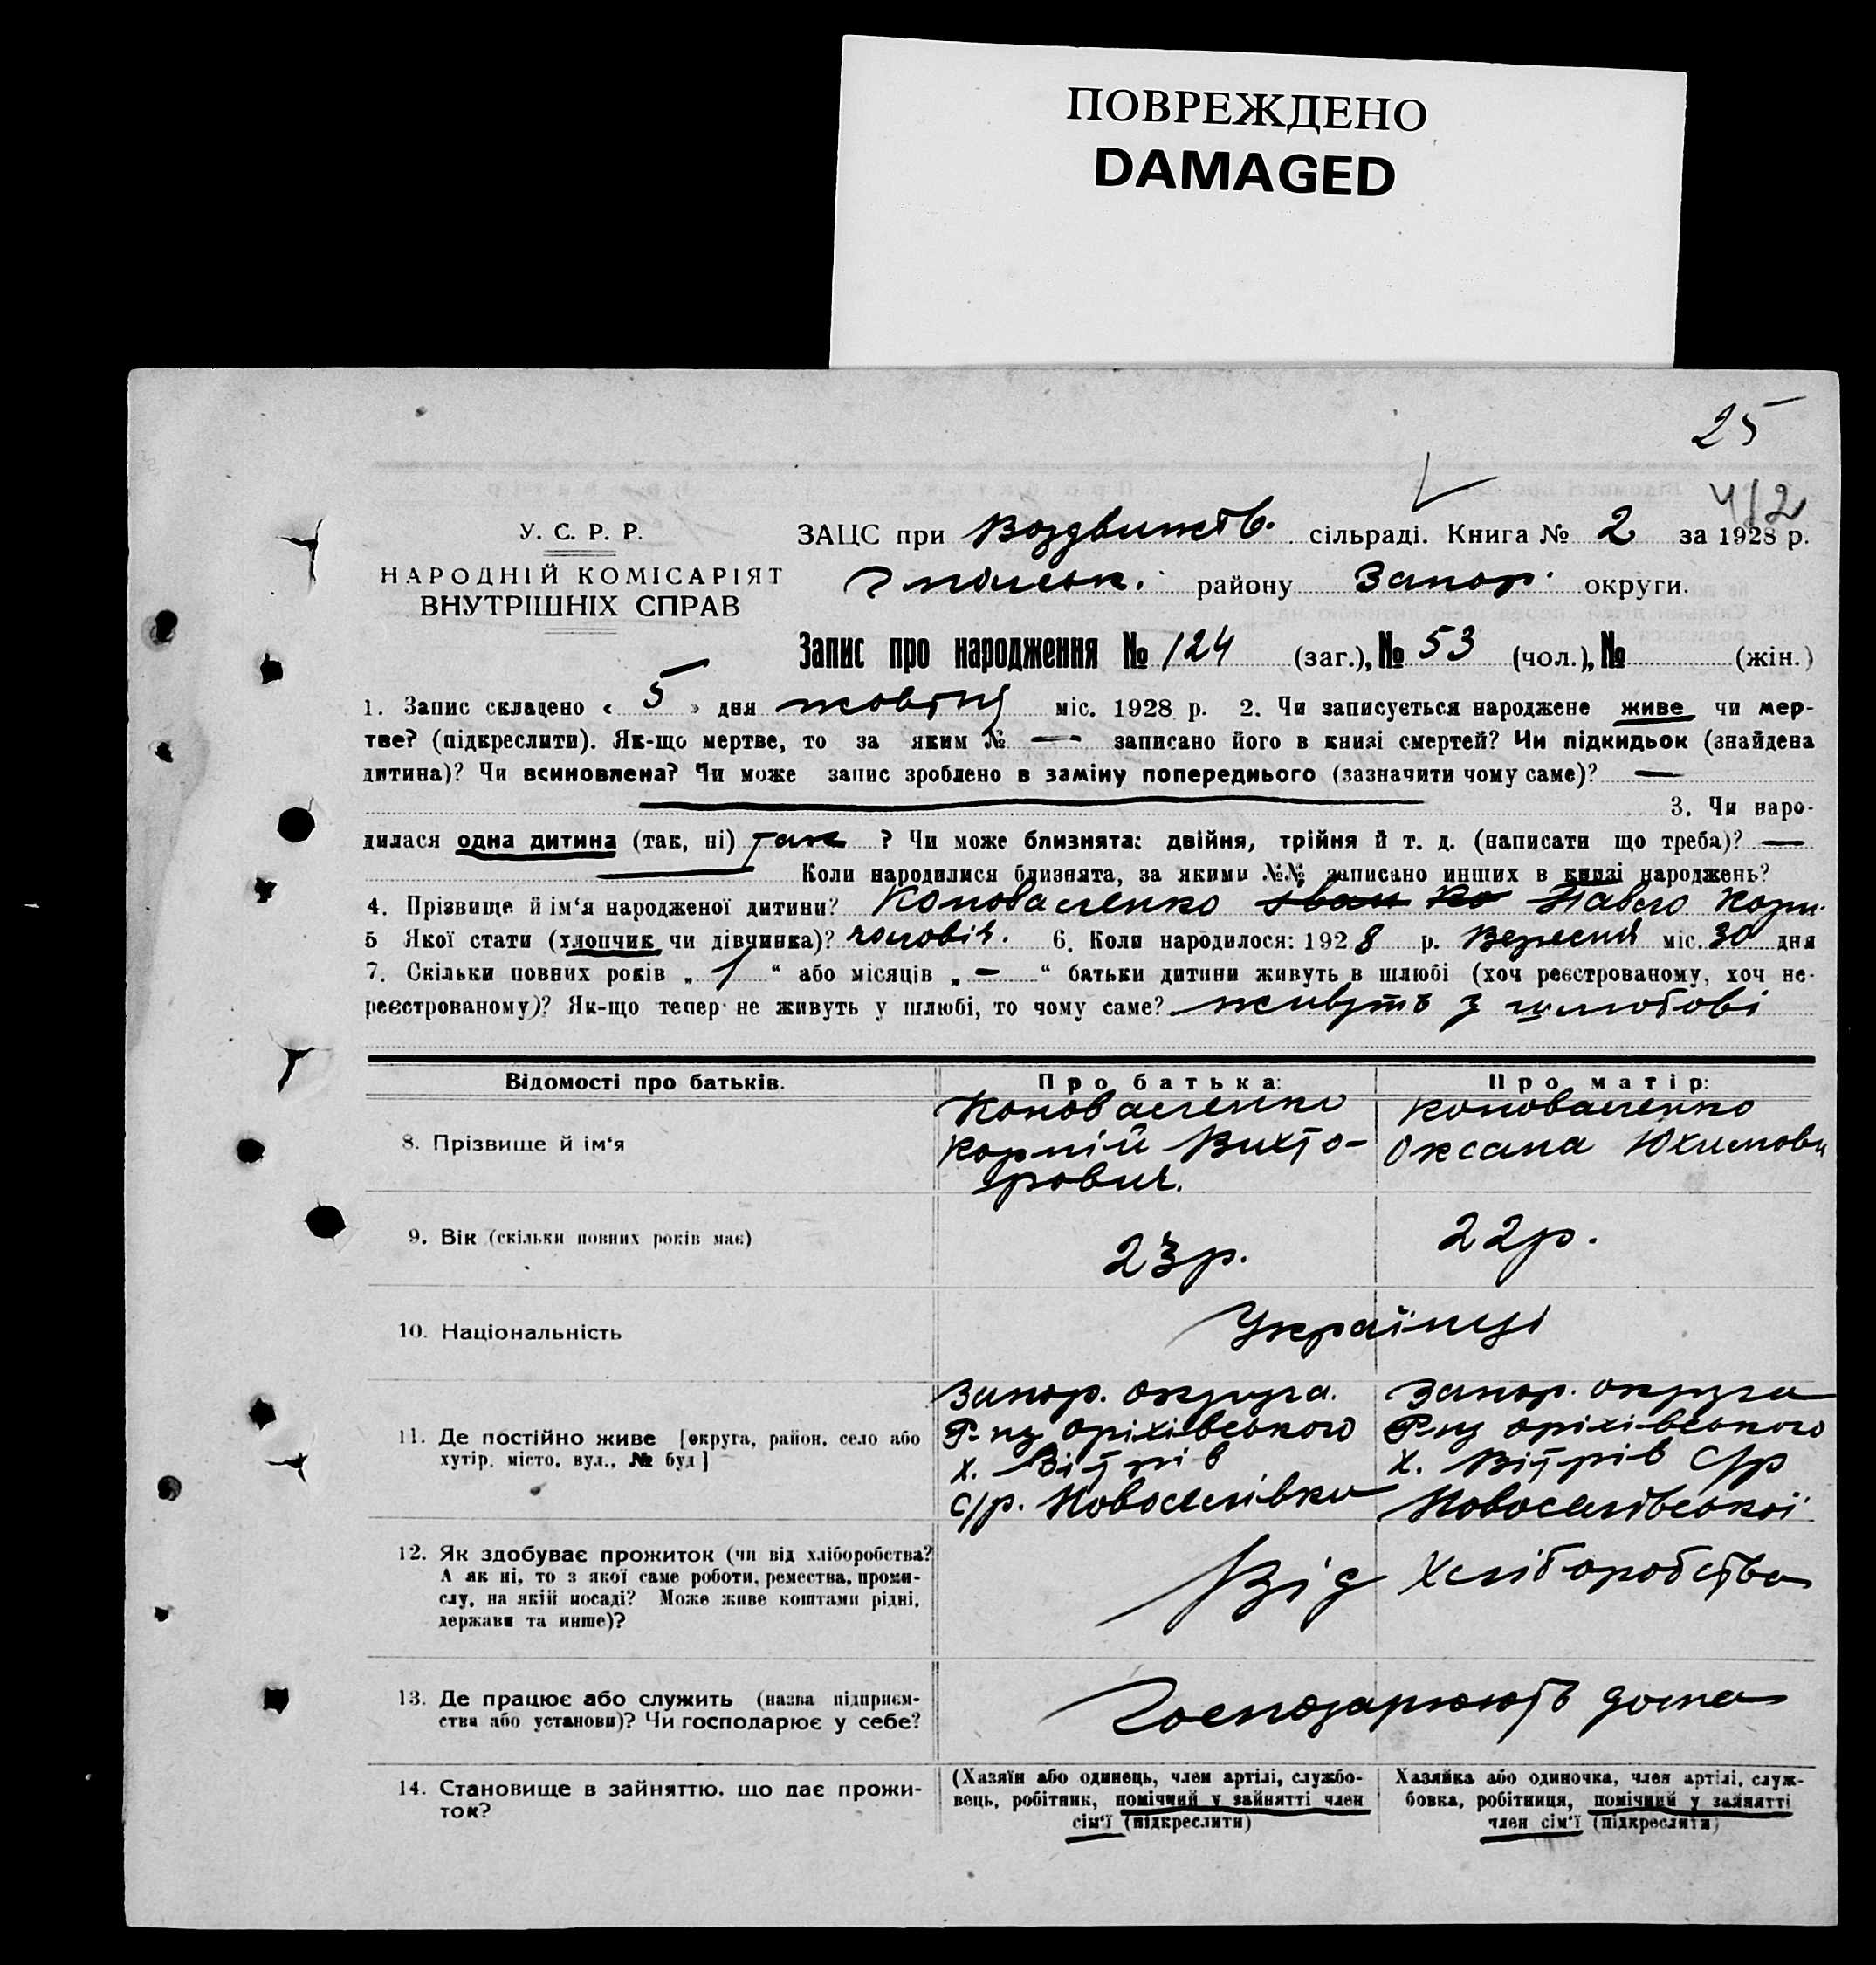 ПОВРЕЖДЕНО
DAMAGED
25
412
У. С. Р. Р.
НАРОДНІЙ КОМІСАРІЯТ
ВНУТРІШНІХ СПРАВ
ЗАЦС при Воздвижств. сільраді. Книга № 2 за 1928 р.
району Запор. округи.
Запис про народження № 124 (заг.), № 53 (чол.), № (жін.)
1. Запис складено « 5 » дня жовтня міс. 1928 р. 2. Чи записується народжене живе чи мер-
тве? (підкреслити). Як-що мертве, то за яким № — записано його в книзі смертей? Чи підкидьок (знайдена
дитина)? Чи всиновлена? Чи може запис зроблено в заміну попереднього (зазначити чому саме)? —
3. Чи наро-
дилася одна дитина (так, ні) так ? Чи може близнята: двійня, трійня й т. д. (написати що треба)? —
Коли народилися близнята, за якими №№ записано инших в книзі народжень?
4. Прізвище й ім‘я народженої дитини? Коноваленко Іван Ко Павло Корн.
5 Якої стати (хлопчик чи дівчинка)? чоловіч. 6. Коли народилося: 1928 р. Вересня міс. 30 дня
7. Скільки повних років „ 1 “ або місяців „ — “ батьки дитини живуть в шлюбі (хоч реєстрованому, хоч не-
реєстрованому)? Як-що тепер не живуть у шлюбі, то чому саме? живуть у шлюбові
Відомості про батьків.
Про батька:
Про матір:
8. Прізвище й ім‘я
Коноваленко
Корній Вихто-
рович.
Коноваленко
Оксана Юхимовн
9. Вік (скільки повних років має)
23р.
22р.
10. Національність
Українці
11. Де постійно живе [округа, район, село або
хутір, місто, вул., № буд]
Запор. округа.
Р-ну Оріхівського
х. Вітрів
с/р. Новоселівка
Запор. округа
Р-ну Оріхівського
х. Вітрів С/р
Новоселівської
12. Як здобуває прожиток (чи від хліборобства?
А як ні, то з якої саме роботи, ремества, проми-
слу, на якій посаді? Може живе коштами рідні,
держави та инше)?
Від Хліборобства
13. Де працює або служить (назва підприєм-
ства або установи)? Чи господарює у себе?
Господарюють дома
14. Становище в зайняттю, що дає прожи-
ток?
(Хазяїн або одинець, член артілі, службо-
вець, робітник, помічний у зайнятті член
сім‘ї (підкреслити)
Хазяйка або одиночка, член артілі, служ-
бовка, робітниця, помічний у зайнятті
член сім‘ї (підкреслити)